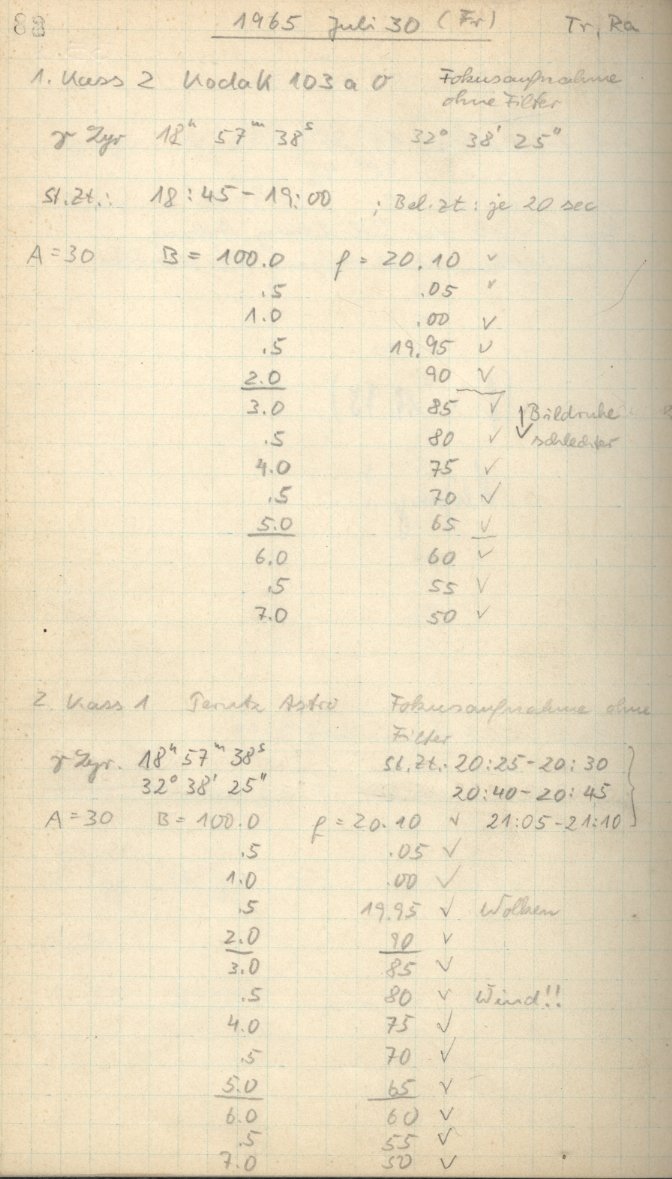 1965 Juli 30 (Fr) Tr, Ra
1. Kass 2 Kodak 103 a O Fokusaufnahme
ohne Filter
γ Lyr 18h 57m 38s 32° 38' 25"
St.Zt.: 18:45 - 19:00 ; Bel.zt: je 20 sec
A = 30 B = 100.0 f = 20.10 ✓
.5 .05 ✓
1.0 .00 ✓
.5 19.95 ✓
2.0 90 ✓
3.0 85 ✓ Bildruhe
.5 80 ✓ schlechter
4.0 75 ✓
.5 70 ✓
5.0 65 ✓
6.0 60 ✓
.5 55 ✓
7.0 50 ✓
2. Kass 1 Perutz Astro Fokusaufnahme ohne
Filter
γ Lyr. 18h 57m 38s St.Zt.: 20:25 - 20:30
32° 38' 25" 20:40 - 20:45
A = 30 B = 100.0 f = 20.10 ✓ 21:05 - 21:10
.5 .05 ✓
1.0 .00 ✓
.5 19.95 ✓ Wolken
2.0 90 ✓
3.0 85 ✓
.5 80 ✓ Wind!!
4.0 75 ✓
.5 70 ✓
5.0 65 ✓
6.0 60 ✓
.5 55 ✓
7.0 50 ✓